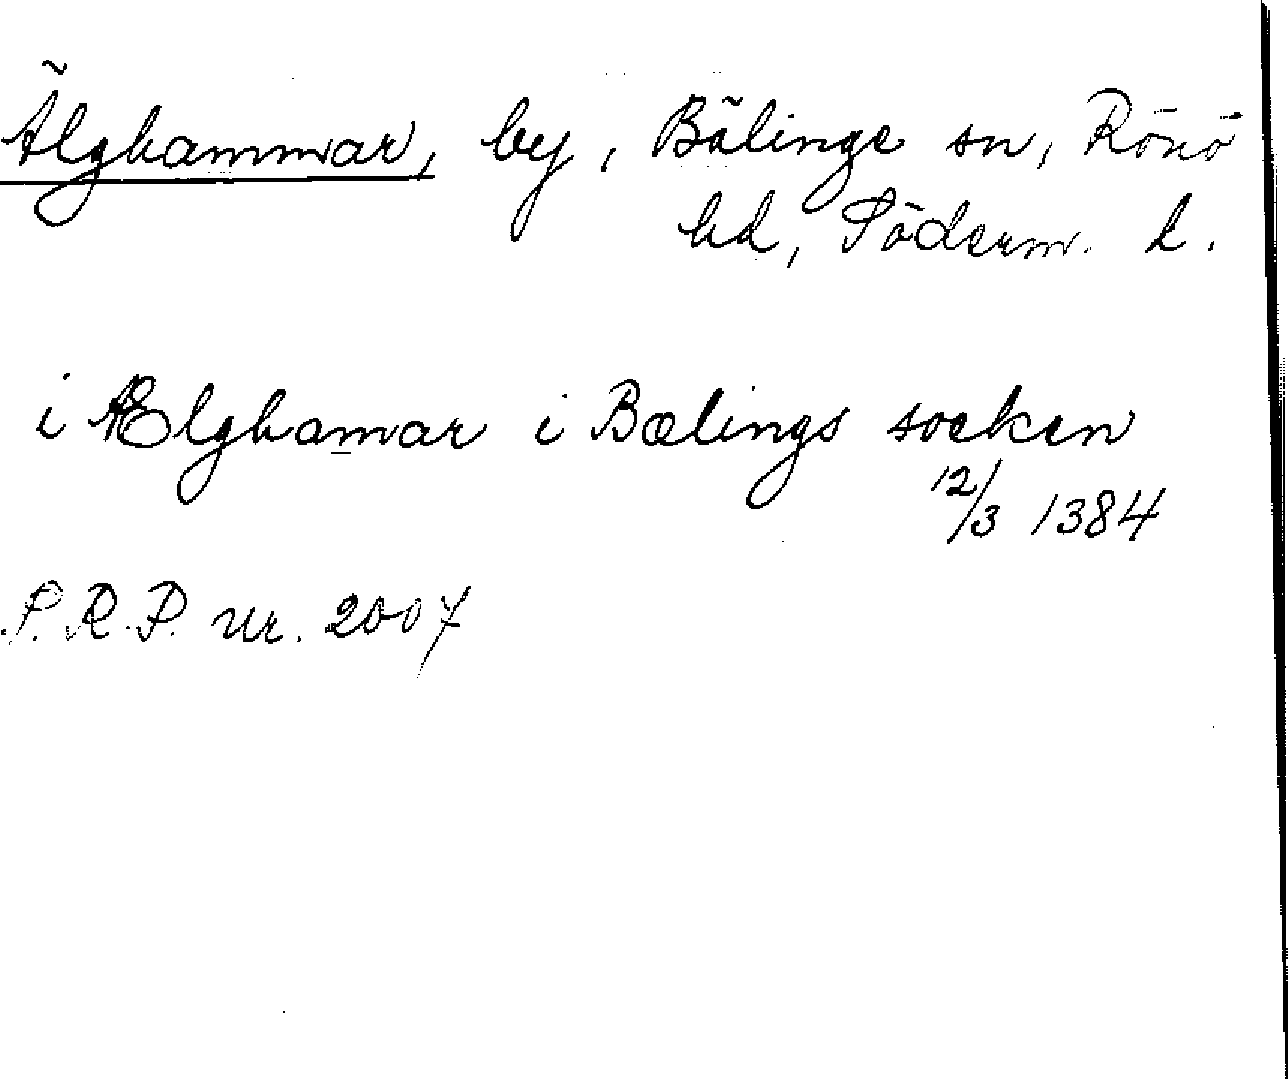 Älghammar, by, Bälinge sn, Rönö
hd, Söderm. l.
i Ælghamar i Bælings socken
12/3 1384
S.R.P. nr. 2007